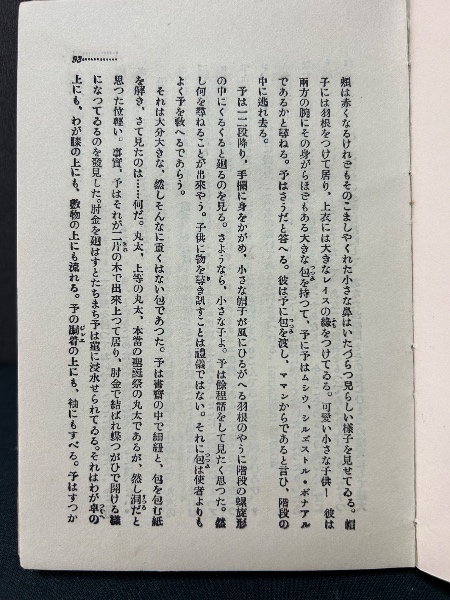 頰は赤くなるけれどもそのこましやくれた小さな鼻はいたづらつ兒らしい様子を見せてゐる。帽
子には羽根をつけて居り、上衣には大きなレイスの縁をつけてゐる。可愛い小さな子供! 彼は
兩方の腕にその身からほどもある大きな包を持つて、予に予はムシウ、シルヹストル・ボナアル
であるかと尋ねる。予はさうだと答へる。彼は予に包を渡し、ママンからであると言ひ、階段の
中に逃れ去る。
予は一二段降り、手欄に身をかがめ、小さな帽子が風にひるがへる羽根のやうに階段の螺旋形
の中にくるくると廻るのを見る。さようなら、小さな子よ。予は餘程話をして見たく思つた。然
し何を尋ねることが出來やう。子供に物を尋き訊すことは禮儀ではない。それに包は使者よりも
よく予を敎へるであらう。
それは大分大きな、然しそんなに重くはない包であつた。予は書齋の中で細紐と、包を包む紙
を解き、さて見たのは……何だ。丸太、上等の丸太、本當の聖誕祭の丸太であるが、然し洞だと
思つた位輕い。事實、予はそれが二片の木で出來上つて居り、肘金で結ばれ蝶つがひで開ける樣
になつてゐるのを發見した。肘金を廻はすとたちまち予は菫に浸水せられてゐる。それはわが卓の
上にも、わが膝の上にも、敷物の上にも流れる。予の胴着の上にも、袖にもすべる。予はすつか
93